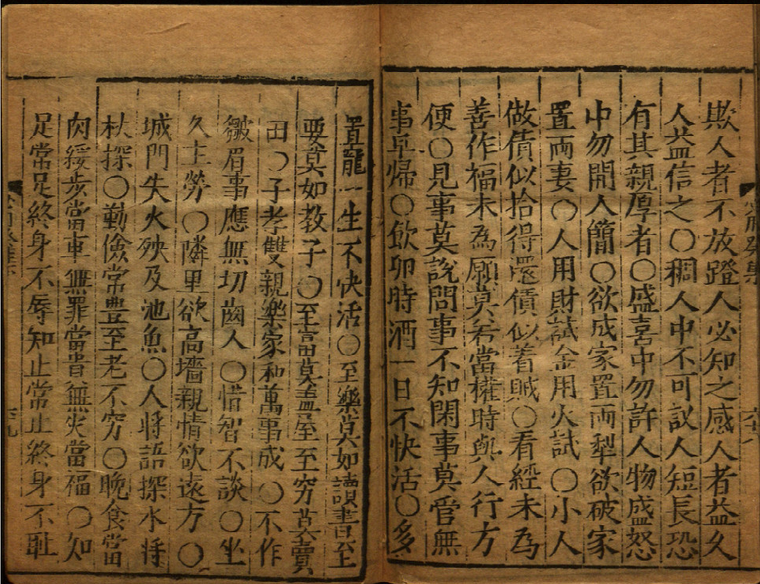 欺人者不放蹬人必知之感人者益久
人益信之〇稠人中不可議人短長恐
有其親厚者〇盛喜中勿許人物盛怒
中勿開人簡〇欲成家置両犁欲破家
置両妻〇人用財試金用火試〇小人
做債似拾得還債似着賊〇看經未為
善作福未為願莫若當權時與人行方
便〇見事莫說問事不知閑事莫管無
事早歸〇飲卯時酒一日不快活〇多
置寵一生不快活〇至樂莫如讀書至
要莫如教子〇至富莫盖屋至窮莫賣
田〇子孝雙親樂家和萬事成〇不作
皺眉事應無切齒人〇惜智不談〇坐
久主勞〇隣里欲高墻親情欲遠方〇
城門失火殃及池魚〇人將語探水將
杖探〇勤儉常豊至老不窮〇晚食當
肉緩步當車無罪當貴無灾當福〇知
足常足終身不辱知止常止終身不恥